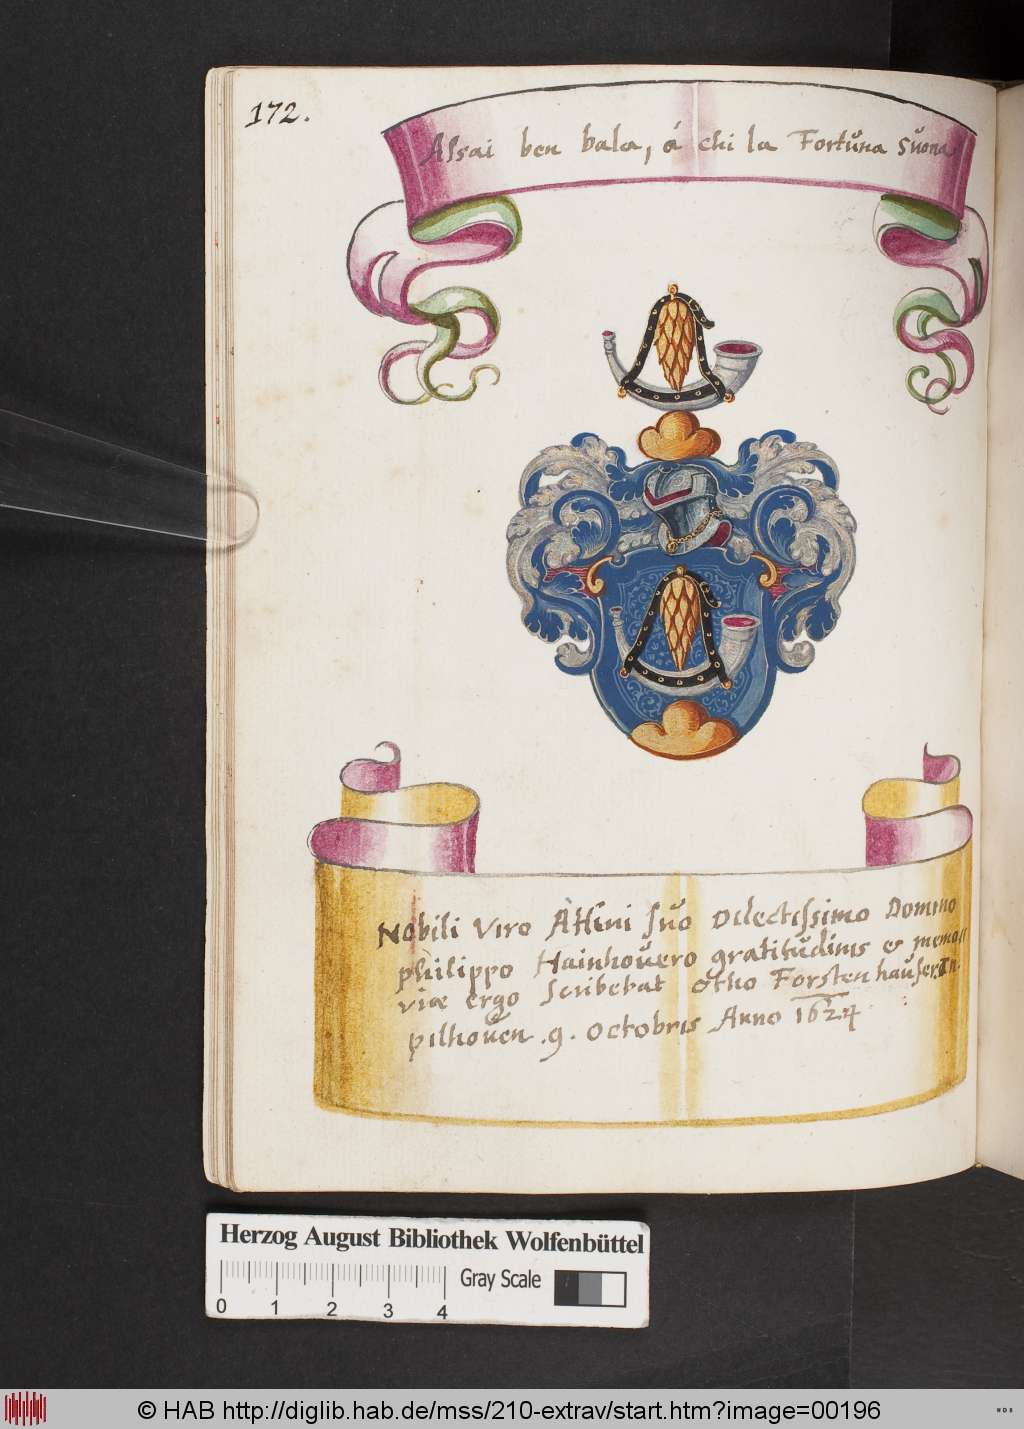 172.
Assai ben bala, á chi la Fortŭna sŭona
Nobili Viro Affini sŭo Dilectissimo Domino
philippo Hainhoŭero gratitŭdinis & memo
riæ ergo scribebat otho Forstenhaŭser. In
pilhoŭen .9. octobris Anno 1624
Herzog August Bibliothek Wolfenbüttel
Gray Scale
0 1 2 3 4
© HAB http://diglib.hab.de/mss/210-extrav/start.htm?image=00196